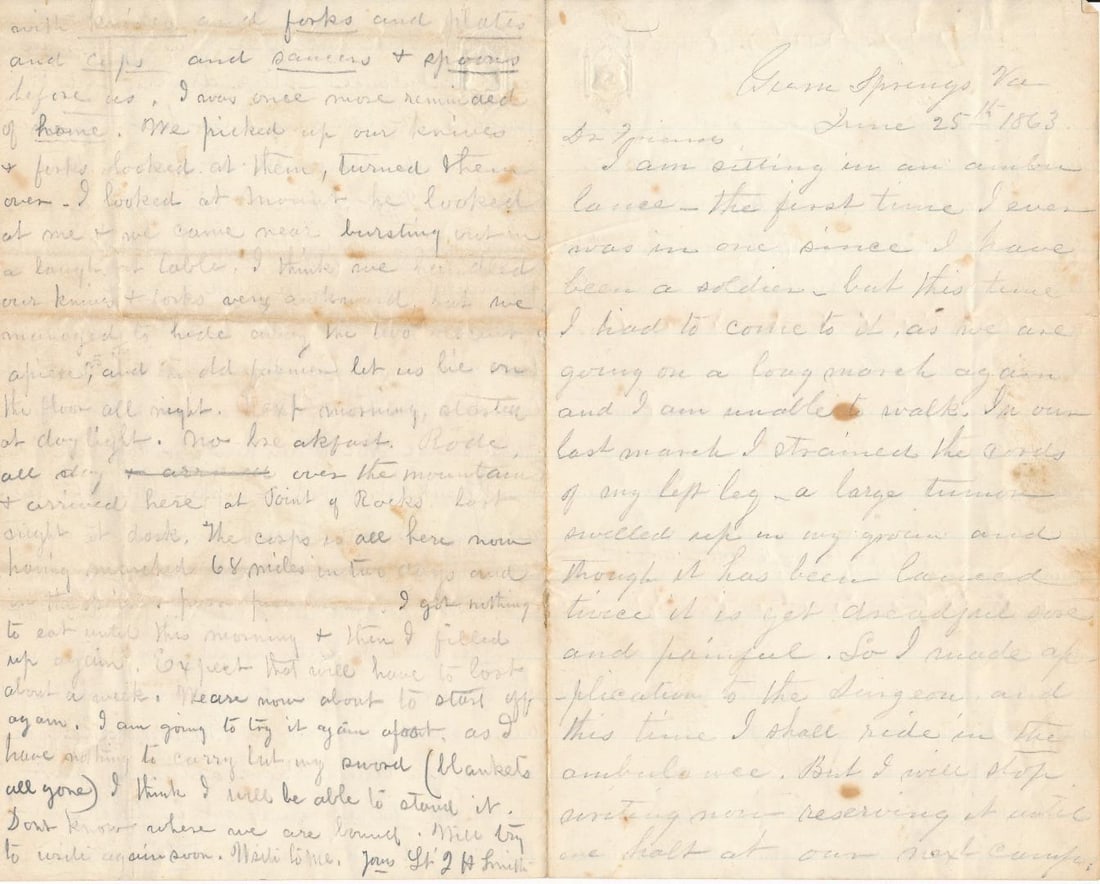 Gum Springs, Va
June 25th 1863.
Dr Friend
I am sitting in an ambu
lance – the first time I ever
was in one since I have
been a soldier – but this time
I had to come to it, as we are
going on a long march again
and I am unable to walk. In our
last march I strained the cords
of my left leg – a large tumor
swelled up in my groin and
though it has been lanced
twice it is yet dreadful sore
and painful. So I made ap-
-plication to the Surgeon and
this time I shall ride in the
ambulance. But I will stop
writing now reserving it until
we halt at our next camp.
with knives and forks and plates
and cups and saucers & spoons
before us, I was once more reminded
of home. We picked up our knives
& forks looked at them, turned them
over – I looked at he looked
at me & we came near bursting out in
a laugh at table. I think we handled
our knives & forks very awkward, but we
managed to hide away the two
apiece, and old let us lie on
the floor all night. Next morning, started
at daylight. No breakfast. Rode
all day & arrived over the mountain
& arrived here at Point of Rocks last
night at dark. The corps is all here now
having marched 68 miles in two days and
in the I got nothing
to eat until this morning & then I filled
up again. Expect that will have to last
about a week. We are now about to start off
again. I am going to try it again afoot, as I
have nothing to carry but my sword (blankets
all gone) I think I will be able to stand it.
Dont know where we are bound. Will try
to write again soon. Write Yours Lt J H Smith